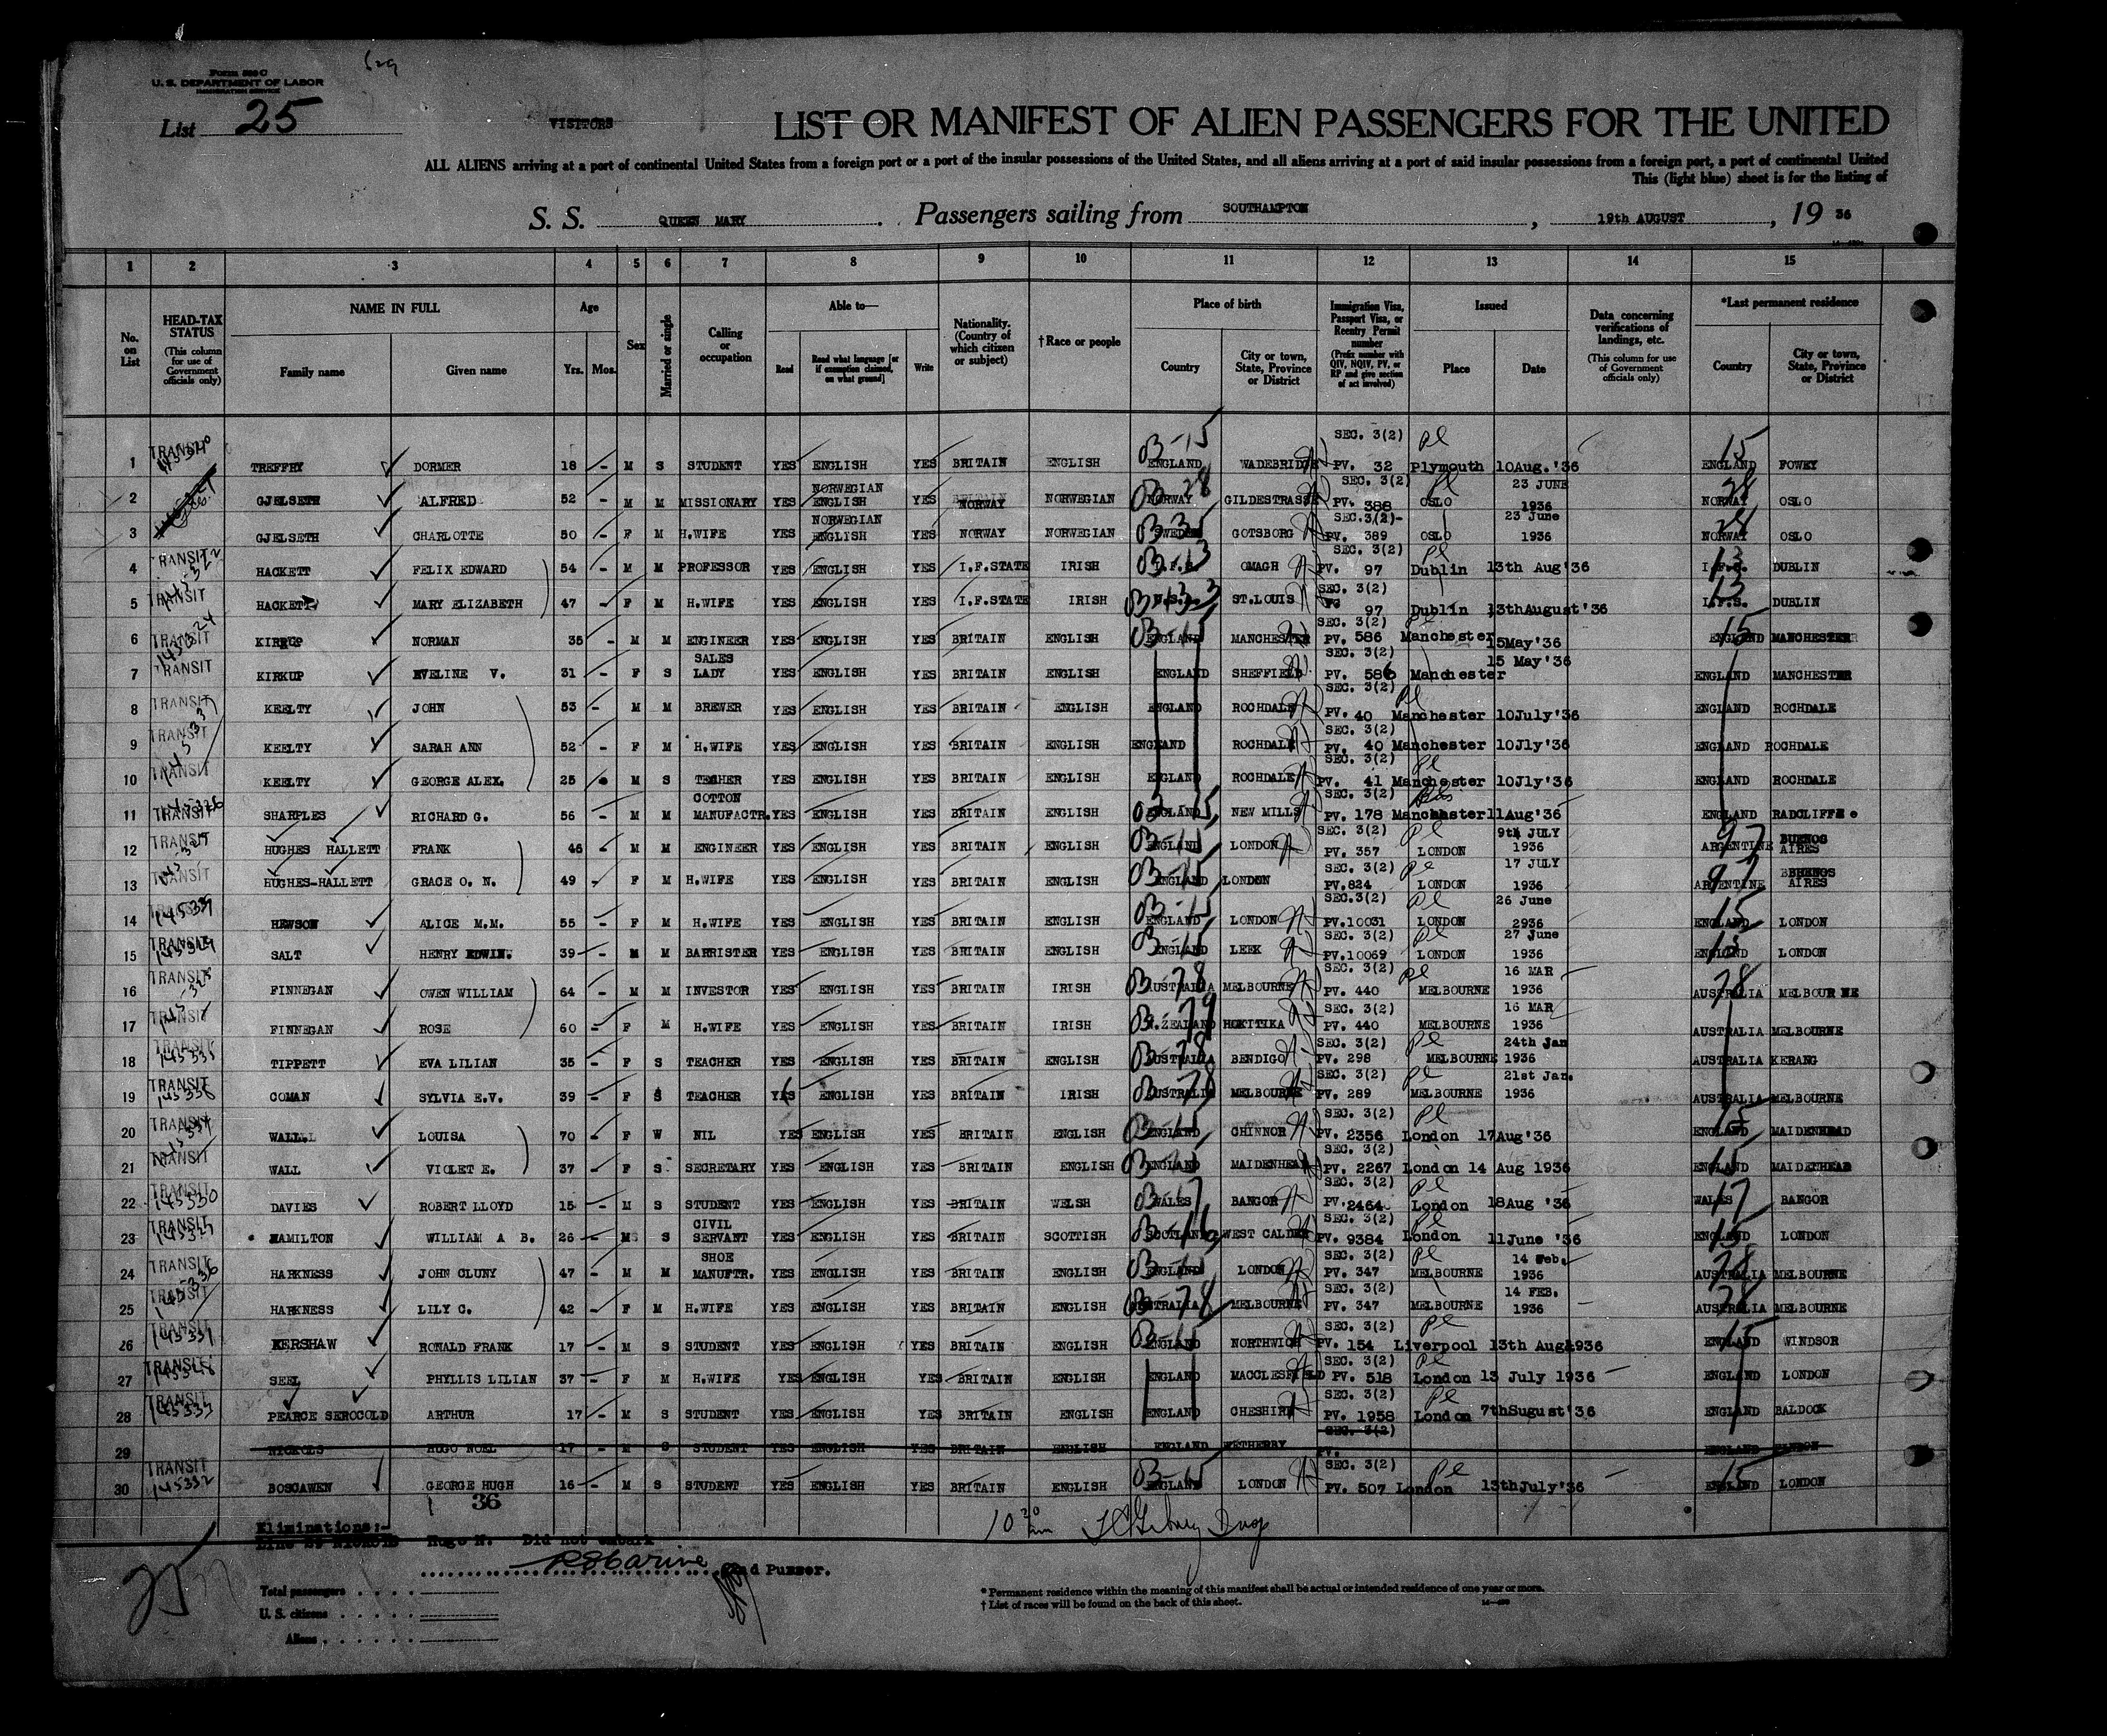 Form 500 C
U. S. DEPARTMENT OF LABOR
IMMIGRATION SERVICE
List 25
VISITORS
LIST OR MANIFEST OF ALIEN PASSENGERS FOR THE UNITED
ALL ALIENS arriving at a port of continental United States from a foreign port or a port of the insular possessions of the United States, and all aliens arriving at a port of said insular possessions from a foreign port, a port of continental United
This (light blue) sheet is for the listing of
S. S. QUEEN MARY. Passengers sailing from SOUTHAMPTON, 19th AUGUST, 19 36
1 2 3 4 5 6 7 8 9 10 11 12 13 14 15
No. on List
HEAD-TAX STATUS (This column for use of Government officials only)
NAME IN FULL
Family name Given name
Age
Yrs. Mos.
Sex
Married or single
Calling or occupation
Able to—
Read Read what language [or if exemption claimed, on what ground] Write
Nationality. (Country of which citizen or subject)
† Race or people
Place of birth
Country City or town, State, Province or District
Immigration Visa, Passport Visa, or Reentry Permit number (Prefix number with QIV, NQIV, PV, or RP and give section of act involved)
Issued
Place Date
Data concerning verifications of landings, etc. (This column for use of Government officials only)
*Last permanent residence
Country City or town, State, Province or District
1 TRANSIT TREFFRY DORMER 18 - M S STUDENT YES ENGLISH YES BRITAIN ENGLISH ENGLAND WADEBRIDGE SEC. 3(2) PV. 32 Plymouth 10Aug.'36 ENGLAND FOWEY
2 GJELSETH ALFRED 52 - M M MISSIONARY YES NORWEGIAN ENGLISH YES NORWAY NORWEGIAN NORWAY GILDESTRASSE SEC. 3(2) PV. 388 OSLO 23 JUNE 1936 NORWAY OSLO
3 GJELSETH CHARLOTTE 50 - F M H.WIFE YES NORWEGIAN ENGLISH YES NORWAY NORWEGIAN SWEDEN GOTSBORG SEC.3(2)- PV. 389 OSLO 23 June 1936 NORWAY OSLO
4 TRANSIT HACKETT FELIX EDWARD 54 - M M PROFESSOR YES ENGLISH YES I.F.STATE IRISH I.F.S. OMAGH SEC. 3(2) PV. 97 Dublin 13th Aug'36 I.F.S. DUBLIN
5 TRANSIT HACKETT MARY ELIZABETH 47 - F M H.WIFE YES ENGLISH YES I.F.STATE IRISH U.S.A. ST.LOUIS SEC. 3(2) 97 Dublin 13thAugust'36 I.F.S. DUBLIN
6 TRANSIT KIRKUP NORMAN 35 - M M ENGINEER YES ENGLISH YES BRITAIN ENGLISH ENGLAND MANCHESTER SEC. 3(2) PV. 586 Manchester 15May'36 ENGLAND MANCHESTER
7 TRANSIT KIRKUP EVELINE V. 31 - F S SALES LADY YES ENGLISH YES BRITAIN ENGLISH ENGLAND SHEFFIELD SEC. 3(2) PV. 586 Manchester 15 May'36 ENGLAND MANCHESTER
8 TRANSIT KEELTY JOHN 53 - M M BREWER YES ENGLISH YES BRITAIN ENGLISH ENGLAND ROCHDALE SEC. 3(2) PV. 40 Manchester 10July'36 ENGLAND ROCHDALE
9 TRANSIT KEELTY SARAH ANN 52 - F M H.WIFE YES ENGLISH YES BRITAIN ENGLISH ENGLAND ROCHDALE SEC. 3(2) PV. 40 Manchester 10Jly'36 ENGLAND ROCHDALE
10 TRANSIT KEELTY GEORGE ALEX. 25 M S TEACHER YES ENGLISH YES BRITAIN ENGLISH ENGLAND ROCHDALE SEC. 3(2) PV. 41 Manchester 10Jly'36 ENGLAND ROCHDALE
11 TRANSIT SHARPLES RICHARD G. 56 - M M COTTON MANUFACTR. YES ENGLISH YES BRITAIN ENGLISH ENGLAND NEW MILLS SEC. 3(2) PV. 178 Manchester 11Aug'36 ENGLAND RADCLIFFE
12 TRANSIT HUGHES HALLETT FRANK 46 - M M ENGINEER YES ENGLISH YES BRITAIN ENGLISH ENGLAND LONDON SEC. 3(2) PV. 357 LONDON 9th JULY 1936 ARGENTINE BUENOS AIRES
13 TRANSIT HUGHES-HALLETT GRACE O. N. 49 - F M H.WIFE YES ENGLISH YES BRITAIN ENGLISH ENGLAND LONDON SEC. 3(2) PV.824 LONDON 17 JULY 1936 ARGENTINE BUENOS AIRES
14 HEWSON ALICE M.M. 55 - F M H.WIFE YES ENGLISH YES BRITAIN ENGLISH ENGLAND LONDON SEC.3(2) PV.10031 LONDON 26 June 2936 ENGLAND LONDON
15 TRANSIT SALT HENRY EDWIN. 39 - M M BARRISTER YES ENGLISH YES BRITAIN ENGLISH ENGLAND LEEK SEC. 3(2) PV.10069 LONDON 27 June 1936 ENGLAND LONDON
16 TRANSIT FINNEGAN OWEN WILLIAM 64 - M M INVESTOR YES ENGLISH YES BRITAIN IRISH AUSTRALIA MELBOURNE SEC. 3(2) PV. 440 MELBOURNE 16 MAR 1936 AUSTRALIA MELBOURNE
17 TRANSIT FINNEGAN ROSE 60 - F M H.WIFE YES ENGLISH YES BRITAIN IRISH N.ZEALAND HOKITIKA SEC. 3(2) PV. 440 MELBOURNE 16 MAR 1936 AUSTRALIA MELBOURNE
18 TRANSIT 145335 TIPPETT EVA LILIAN 35 - F S TEACHER YES ENGLISH YES BRITAIN ENGLISH AUSTRALIA BENDIGO SEC. 3(2) PV. 298 MELBOURNE 24th Jan 1936 AUSTRALIA KERANG
19 TRANSIT COMAN SYLVIA E.V. 39 - F S TEACHER YES ENGLISH YES BRITAIN IRISH AUSTRALIA MELBOURNE SEC. 3(2) PV. 289 MELBOURNE 21st Jan. 1936 AUSTRALIA MELBOURNE
20 TRANSIT WALL LOUISA 70 - F W NIL YES ENGLISH YES BRITAIN ENGLISH ENGLAND CHINNOR SEC. 3(2) PV. 2356 London 17Aug'36 ENGLAND MAIDENHEAD
21 TRANSIT WALL VIOLET E. 37 - F S SECRETARY YES ENGLISH YES BRITAIN ENGLISH ENGLAND MAIDENHEAD SEC. 3(2) PV. 2267 London 14 Aug 1936 ENGLAND MAIDENHEAD
22 TRANSIT 145330 DAVIES ROBERT LLOYD 15 - M S STUDENT YES ENGLISH YES BRITAIN WELSH WALES BANGOR SEC. 3(2) PV. 2464 London 18Aug '36 WALES BANGOR
23 TRANSIT HAMILTON WILLIAM A B. 26 - M S CIVIL SERVANT YES ENGLISH YES BRITAIN SCOTTISH SCOTLAND WEST CALDER SEC. 3(2) PV. 9384 London 11June '36 ENGLAND LONDON
24 TRANSIT HARKNESS JOHN CLUNY 47 - M M SHOE MANUFTR. YES ENGLISH YES BRITAIN ENGLISH ENGLAND LONDON SEC. 3(2) PV. 347 MELBOURNE 14 Feb. 1936 AUSTRALIA MELBOURNE
25 TRANSIT HARKNESS LILY C. 42 - F M H.WIFE YES ENGLISH YES BRITAIN ENGLISH AUSTRALIA MELBOURNE SEC. 3(2) PV. 347 MELBOURNE 14 FEB. 1936 AUSTRALIA MELBOURNE
26 TRANSIT KERSHAW RONALD FRANK 17 - M S STUDENT YES ENGLISH YES BRITAIN ENGLISH ENGLAND NORTHWICH SEC. 3(2) PV. 154 Liverpool 13th Aug1936 ENGLAND WINDSOR
27 TRANSIT SEEL PHYLLIS LILIAN 37 - F M H.WIFE YES ENGLISH YES BRITAIN ENGLISH ENGLAND MACCLESFIELD SEC. 3(2) PV. 518 London 13 July 1936 ENGLAND LONDON
28 TRANSIT PEARCE SEROCOLD ARTHUR 17 - M S STUDENT YES ENGLISH YES BRITAIN ENGLISH ENGLAND CHESHIRE SEC. 3(2) PV. 1958 London 7thSugust'36 ENGLAND BALDOCK
29 NICKOLS HUGO NOEL 17 - M S STUDENT YES ENGLISH YES BRITAIN ENGLISH ENGLAND WETHERBY SEC. 3(2) PV. ENGLAND
30 TRANSIT 145332 BOSCAWEN GEORGE HUGH 16 - M S STUDENT YES ENGLISH YES BRITAIN ENGLISH ENGLAND LONDON SEC. 3(2) PV. 507 London 13thJuly'36 ENGLAND LONDON
36
Eliminations:-
Line 29 Nickols Hugo N. Did not embark
2nd Purser.
Total passengers
U. S. citizens
Aliens
* Permanent residence within the meaning of this manifest shall be actual or intended residence of one year or more.
† List of races will be found on the back of this sheet.